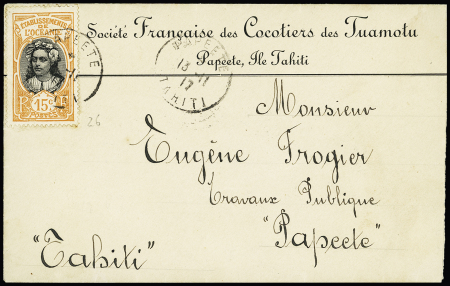 ETABLISSEMENTS
DE L'OCÉANIE
15c
POSTES
PAPEETE
Société Française des Cocotiers des Tuamotu
Papeete, Ile Tahiti
PAPEETE
13 -11
17
TAHITI
26
Monsieur
Eugène Frogier
Travaux Publique
"Papeete"
"Tahiti"